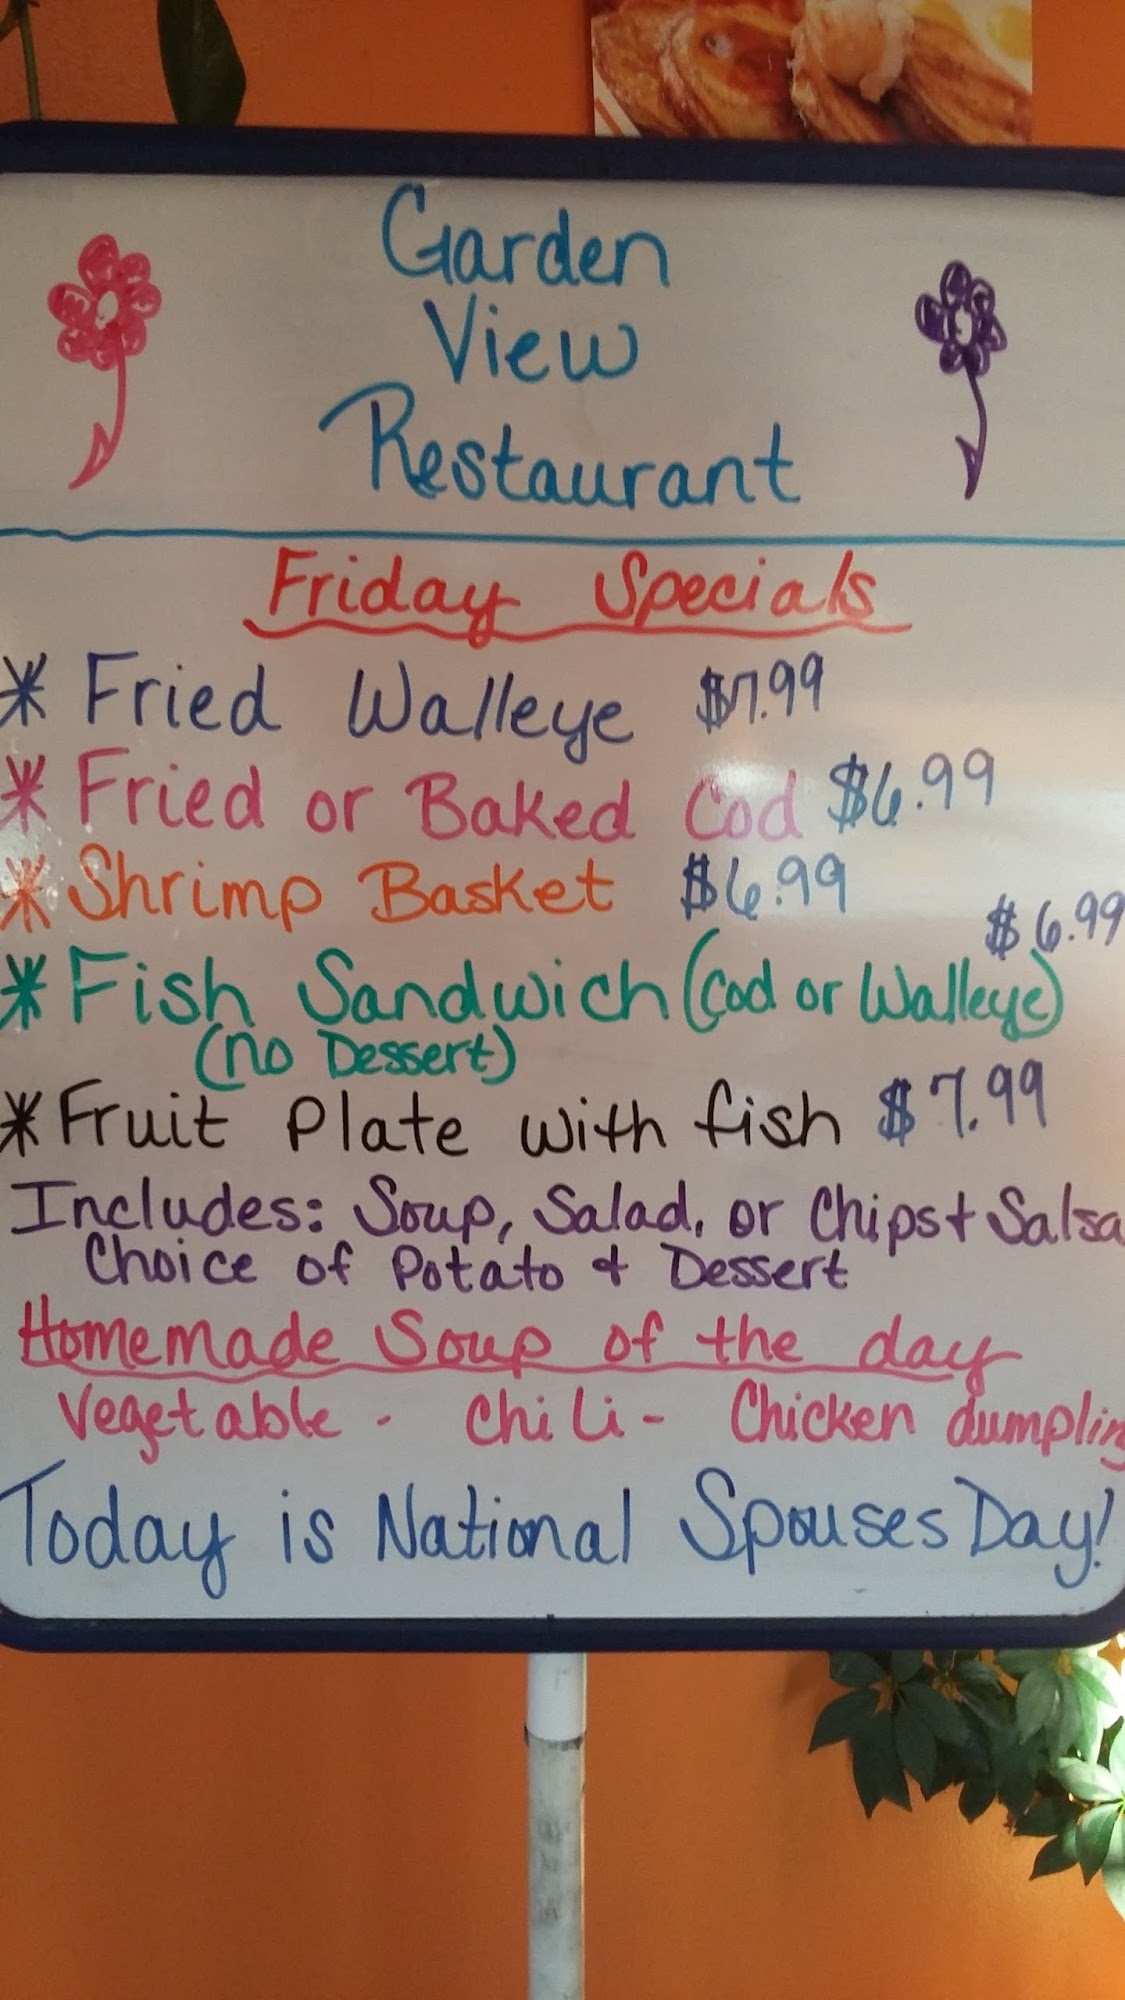 Garden
View
Restaurant
Friday Specials
* Fried Walleye $7.99
* Fried or Baked Cod $6.99
* Shrimp Basket $6.99
$6.99
* Fish Sandwich (Cod or Walleye)
(no Dessert)
* Fruit Plate with fish $7.99
Includes: Soup, Salad, or Chips + Salsa
Choice of Potato + Dessert
Homemade Soup of the day
Vegetable - Chili - Chicken dumplin
Today is National Spouses Day!